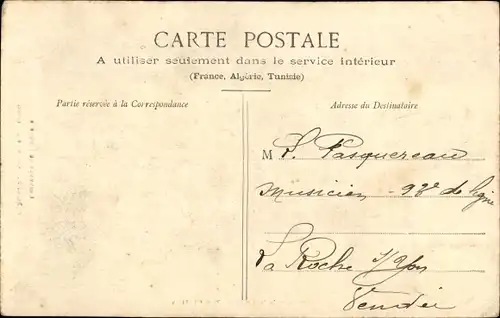 CARTE POSTALE
A utiliser seulement dans le service intérieur
(France, Algérie, Tunisie)
Partie réservée à la Correspondance
Adresse du Destinataire
M S. Pasquereau
Musicien - 93e de ligne
La Roche s/Yon
Vendée